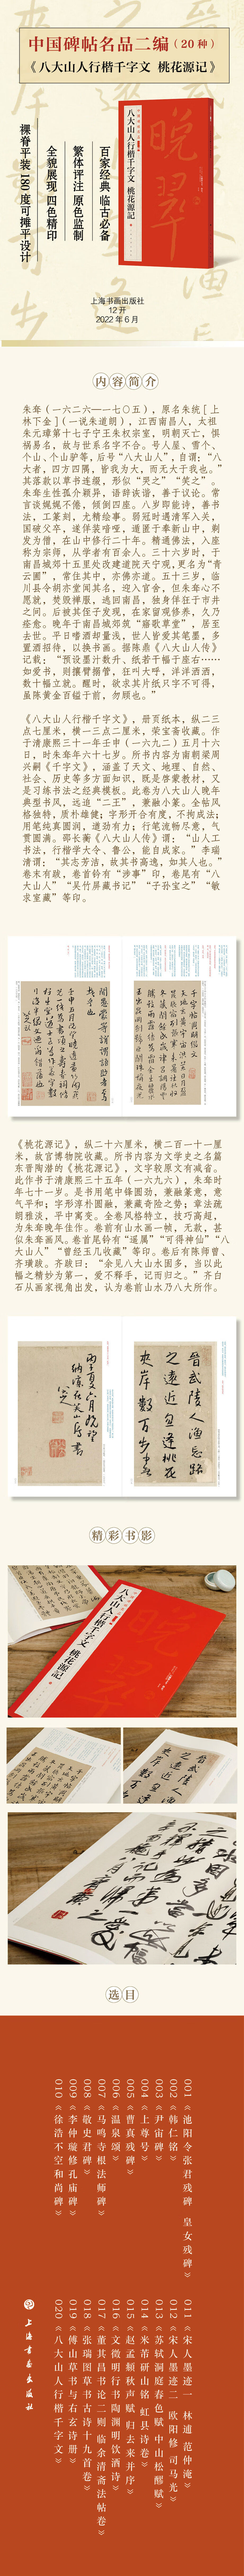 中国碑帖名品二编(20种)
《八大山人行楷千字文 桃花源记》
百家经典 临古必备
繁体评注 原色监制
全貌展现 四色精印
裸脊平装 180度可摊平设计
晚翠
八大山人行楷千字文 桃花源記
上海书画出版社
12开
2022年6月
内容简介
朱耷(一六二六—一七〇五),原名朱统[上
林下金](一说朱道朗),江西南昌人,太祖
朱元璋第十七子宁王朱权宗室,明朝灭亡,惧
祸易名,故与世系名字不合。号人屋、雪个、
个山、个山驴等,后号“八大山人”,自谓:“八
大者,四方四隅,皆我为大,而无大于我也。”
其落款以草书连缀,形似“哭之”“笑之”。
朱耷生性孤介颖异,语辞诙谐,善于议论。常
言谈娓娓不倦,倾倒四座。八岁即能诗,善书
法,工篆刻,尤精绘事。弱冠时遇清军入关,
国破父卒,遂佯装喑哑,遁匿于奉新山中,剃
发为僧,在山中修行二十年。精通佛法,入座
称为宗师,从学者有百余人。三十六岁时,于
南昌城郊十五里处改建道院天宁观,更名为“青
云圃”,常住其中,亦佛亦道。五十三岁,临
川县令胡亦堂闻其名,迎入官舍,但朱耷心不
愿就,焚毁禅服,逃回南昌,独身佯狂于市井
之间。后被其侄子发现,在家留观修养,久乃
痊愈。晚年于南昌城郊筑“寤歌草堂”,居至
去世。平日嗜酒却量浅,世人皆爱其笔墨,多
置酒招待,以换书画。据陈鼎《八大山人传》
记载:“预设墨汁数升、纸若干幅于座右……
如爱书,则攘臂搦管,狂叫大呼,洋洋洒洒,
数十幅立就。醒时,欲求其片纸只字不可得,
虽陈黄金百镒于前,勿顾也。”
《八大山人行楷千字文》,册页纸本,纵二三
点七厘米,横一三点二厘米,荣宝斋收藏。作
于清康熙三十一年壬申(一六九二)五月十六
日,时朱耷年六十七岁。所书内容为南朝梁周
兴嗣《千字文》,涵盖了天文、地理、自然、
社会、历史等多方面知识,既是启蒙教材,又
是习练书法之经典模板。此卷为八大山人晚年
典型书风,远追“二王”,兼融小篆。全帖风
格独特,质朴雄健;字形开合有度,不拘成法;
用笔纯真圆润,遒劲有力;行笔流畅尽意,气
贯圆满。邵长蘅《八大山人传》谓:“山人工
书法,行楷学大令、鲁公,能自成家。”李瑞
清谓:“其志芳洁,故其书高逸,如其人也。”
卷末有跋,卷首钤有“涉事”印,卷尾有“八
大山人”“吴竹屏藏书记”“子孙宝之”“敏
求室藏”等印。
《桃花源记》,纵二十六厘米,横二百一十一厘
米,故宫博物院收藏。所书内容为文学史之名篇
东晋陶潜的《桃花源记》,文字较原文有减省。
此作书于清康熙三十五年(一六九六),朱耷时
年七十一岁。是书用笔中锋圆劲,兼融篆意,意
气平和;字形淳朴圆融,兼藏奇险之势;章法疏
朗雅淡,平中寓变。全卷风格特立,技巧高超,
为朱耷晚年佳作。卷前有山水画一帧,无款,甚
似朱耷画风。卷首尾钤有“遥属”“可得神仙”“八
大山人”“曾经玉几收藏”等印。卷后有陈师曾、
齐璜跋。齐跋曰:“余见八大山水固多,当以此
幅之精妙为第一,爱不释手,记而归之。”齐白
石从画家视角出发,认为卷前山水乃八大所作。
晋武陵人渔忘路
之遠近忽逢桃花
夹岸數百步中無
精彩书影
八大山人行楷千字文 桃花源記
选目
001《池阳令张君残碑 皇女残碑》
002《韩仁铭》
003《尹宙碑》
004《上尊号》
005《曹真残碑》
006《温泉颂》
007《马鸣寺根法师碑》
008《敬史君碑》
009《李仲璇修孔庙碑》
010《徐浩不空和尚碑》
011《宋人墨迹一 林逋 范仲淹》
012《宋人墨迹二 欧阳修 司马光》
013《苏轼洞庭春色赋 中山松醪赋》
014《米芾研山铭 虹县诗卷》
015《赵孟頫秋声赋 归去来并序》
016《文徵明行书陶渊明饮酒诗》
017《董其昌书论二则 临余清斋法帖卷》
018《张瑞图草书古诗十九首卷》
019《傅山草书与右玄诗册》
020《八大山人行楷千字文》
上海书画出版社